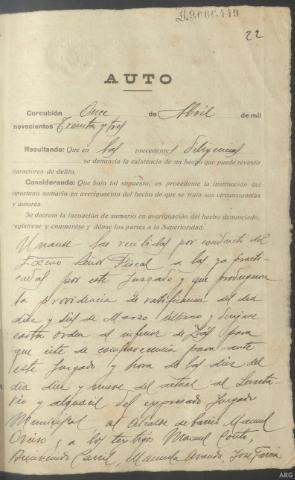 B.9066,449
22
AUTO
Corcubión Once de Abril de mil
novecientos Treinta y tres
Resultando: Que en las precedentes diligencias
se denuncia la existencia de un hecho que puede revestir
caracteres de delito.
Considerando: Que bajo tal supuesto, es procedente la instrucción del
oportuno sumario en averiguación del hecho de que se trata sus circunstancias
y autores.
Se decreta la incoación de sumario en averiguación del hecho denunciado,
regístrese y enumérese y dénse los partes a la Superioridad.
Unanse las recibidas por conducto del
Excmo Señor Fiscal a las ya practi-
cadas por este Juzgado y que produjeron
la providencia de ratificación del día
diez y seis de Marzo último, y diríjase
carta orden al inferior de Zas para
que cite de comparecencia para ante
este Juzgado y hora de las diez del
día diez y nueve del actual al Secreta-
rio y alguacil del expresado Juzgado
Municipal al Manuel
a los testigos Manuel Couto,
Bienvenido Carril, Manuela José García
ARG